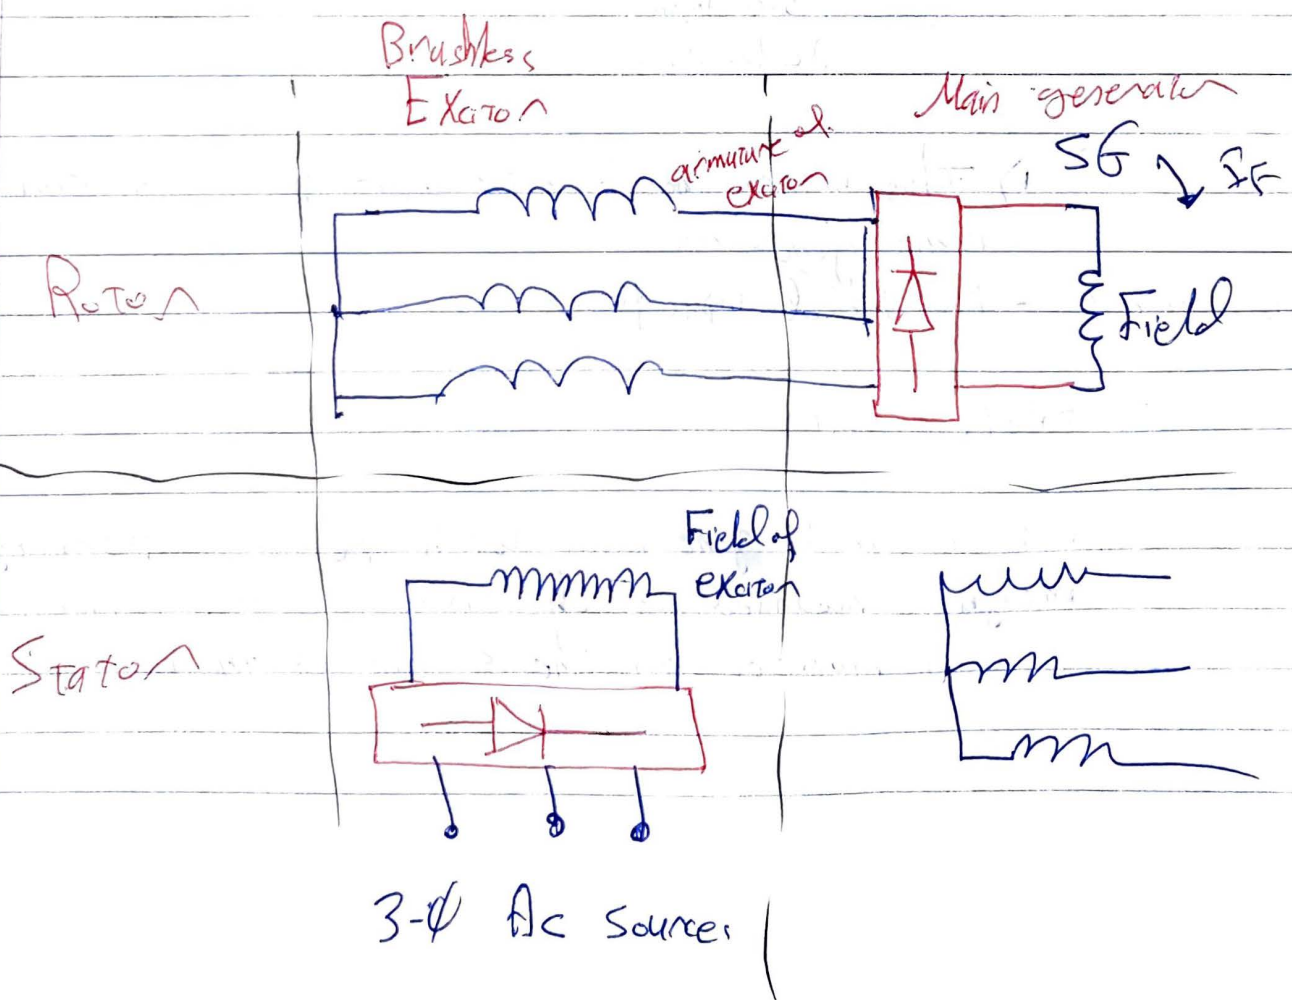 Brushless
Exciter
Main generator
SG
IF
armuture of
exciter
Rotor
Field
Field of
exciter
Stator
3-ϕ Ac source.